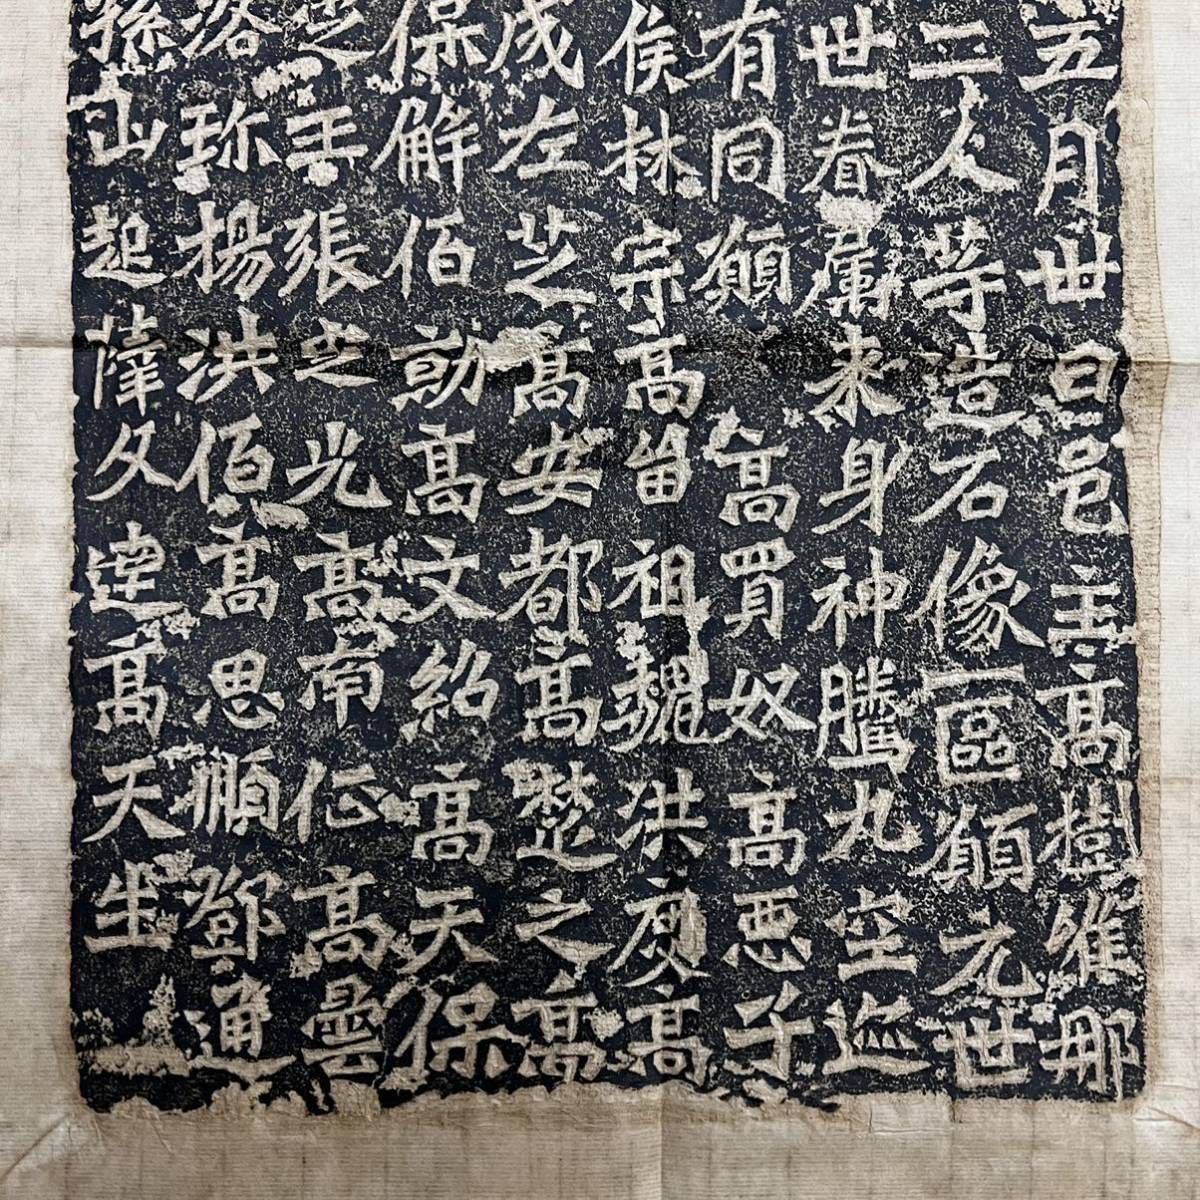 五月卅日邑主高樹唯那
二人等造石像一區願元世
世眷属来身神騰九空迊
有同願高買奴高悪子
侯林宗高留祖魏洪慶高
成左芝高安都高楚之高
保解伯勍高文紹高天保
芝王張之光高南征高曇
洛珎楊洪佰高思順鄧通
孫山起薩文達高天生